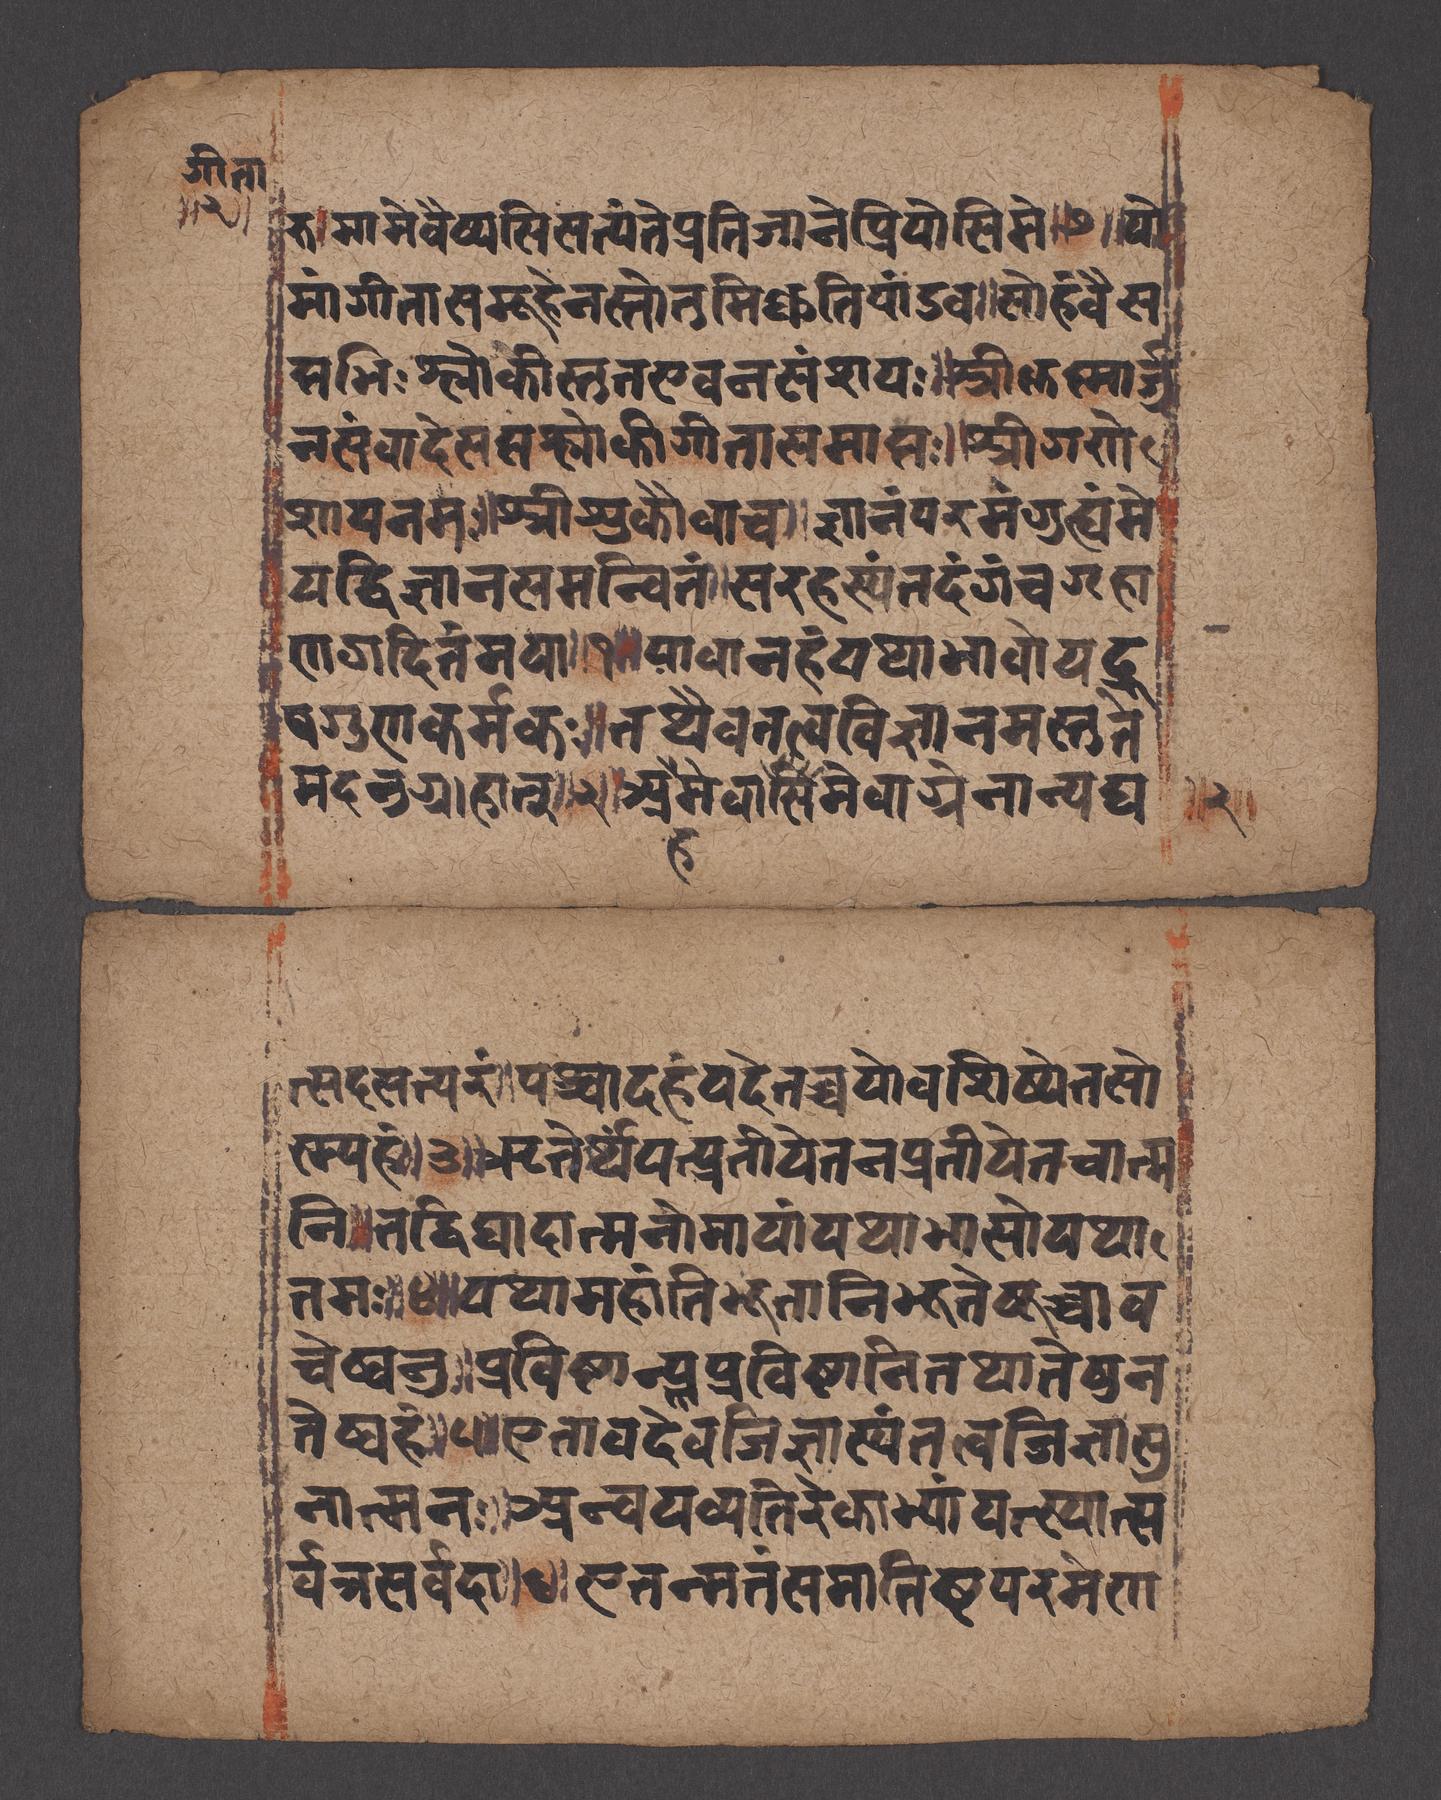 गीता
॥२॥
रु।मामेवैष्यसिसत्यंतेप्रतिजानेप्रियोसिमे॥७॥यो
मांगीतासमूहेनस्तोतुमिछतिपांडव॥सोहंवैस
प्तभिःश्लोकीस्तुतएवनसंशयः॥श्रीकृष्णार्जु
नसंवादेसप्तश्लोकीगीतासमाप्तः॥श्रीगणे
शायनमः॥श्रीशुकौवाच॥ज्ञानंपरमंगुह्यंमे
यद्विज्ञानसमन्वितं॥सरहस्यंतदंगंचगृहा
णगदितंमया॥१॥यावानहंयथाभावोयद्रु
पगुणकर्मकः॥तथैवतत्वविज्ञानमस्तुते
मदनुग्र।हात्॥२॥अ्रमेवासमेवाग्रेनान्यद्य
ह
॥२॥
त्सदसत्परं॥पश्चादहंयदेतच्चयोवशिष्येतसो
स्म्यहं॥३॥ऋतेर्थंयत्प्रतीयेतनप्रतीयेतचात्म
नि॥तद्विद्यादात्मनोमायांयथाभासोयथा
तमः॥४॥यथामहांतिभूतानिभूतेषूच्चाव
चेष्वनु॥प्रविष्टान्यप्रविष्टानितथातेषुन
तेष्वहं॥५॥एतावदेवजिज्ञास्यंतत्वजिज्ञासु
नात्मनः॥अन्वयव्यतिरेकाभ्यांयत्स्यात्स
र्वत्रसर्वदा॥६॥एतन्मतंसमातिष्ठपरमेणा